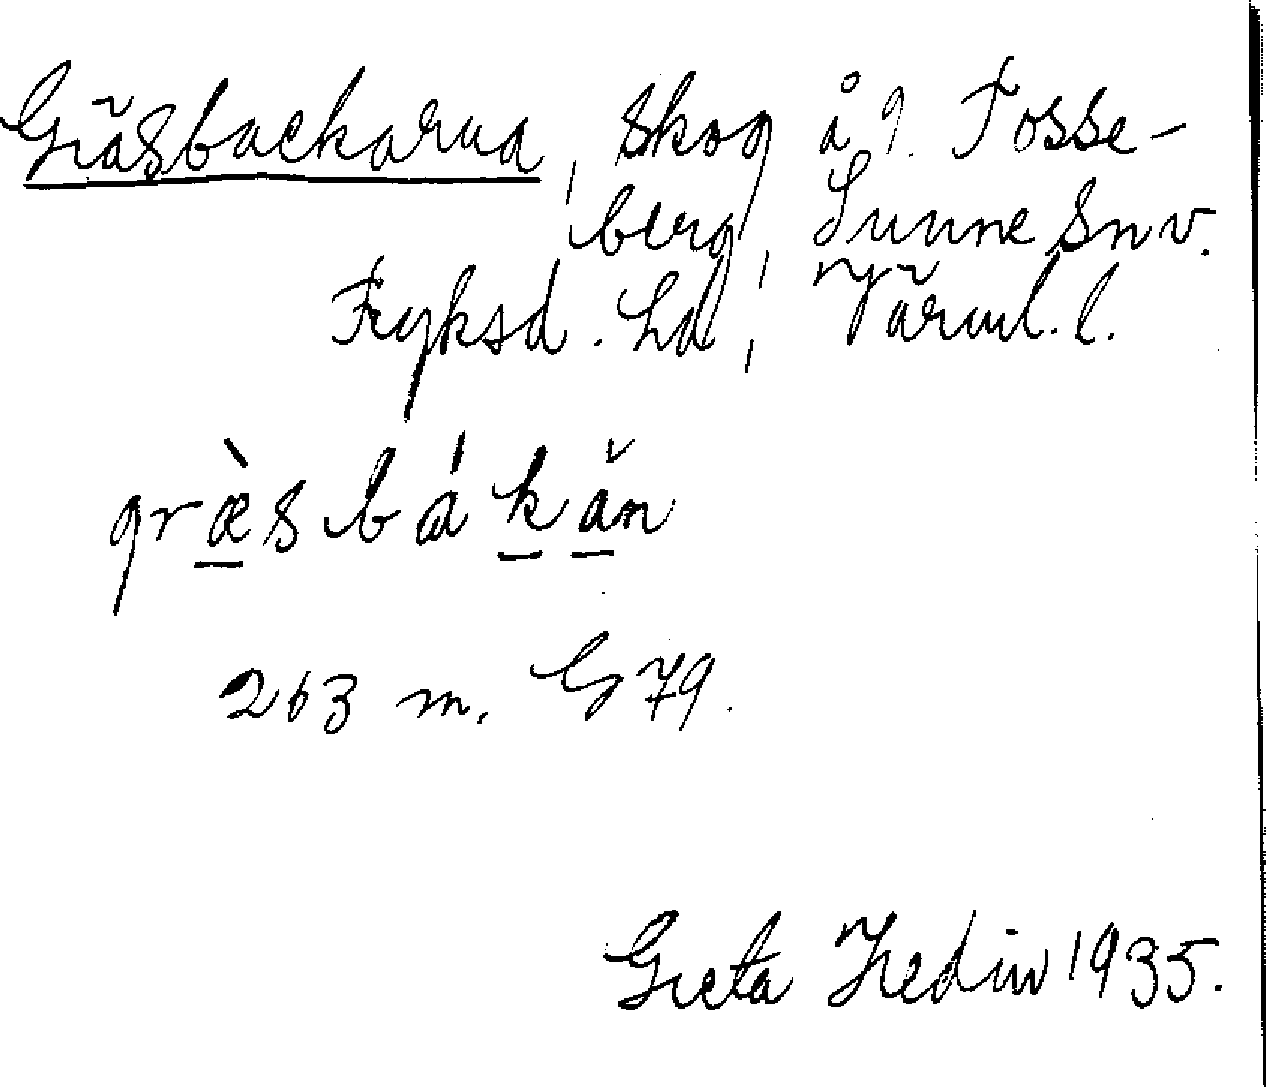 Gräsbackarna, skog å g. Tosse-
berg, Sunne sn v.
Fryksd. hd, Värml. l.
græ̀sbákăn
263 m. G 79.
Greta Hedin 1935.